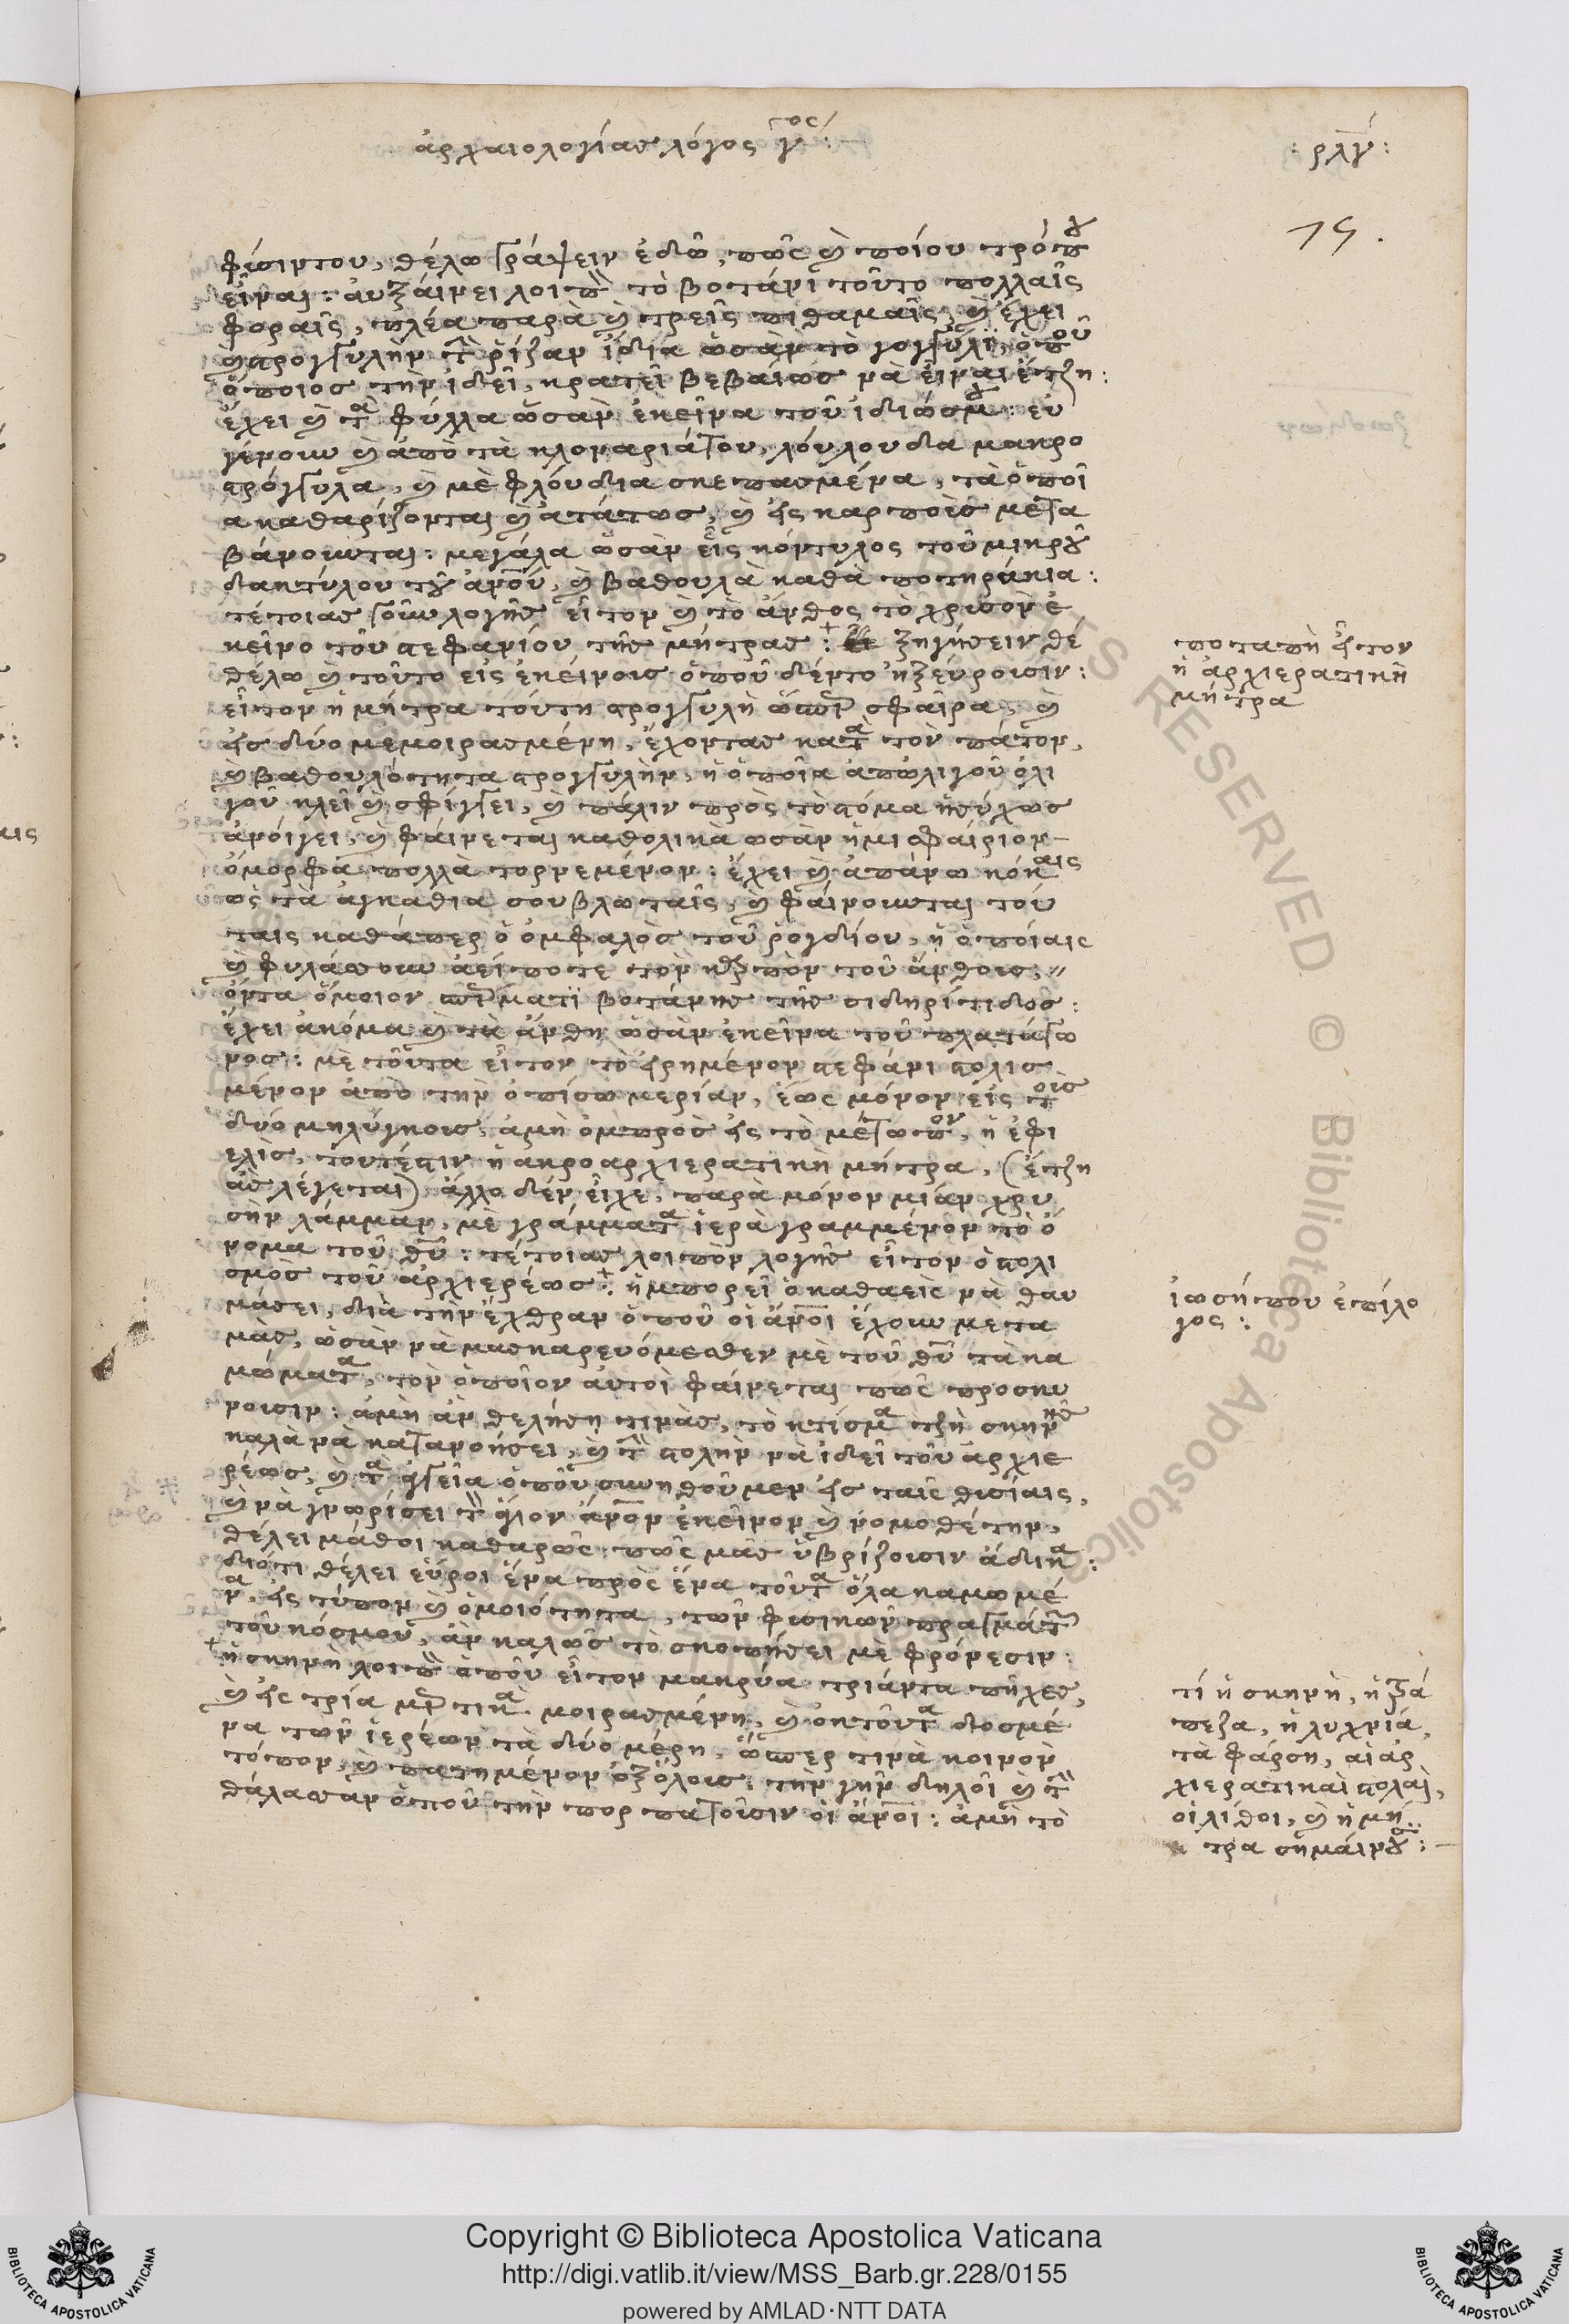 ἀρχαιολογίας λόγος γ´ος :
: ρλγ´ :
19.
φύσιντου, θέλω γράψειν ἐδῶ, πῶς καὶ ποίου τρόπου
εἶναι : αὐξάινει λοιπὸν τὸ βοτάνι τοῦτο πολλαῖς
φοραῖς, πλέα παρὰ καὶ τρεῖς πιθαμαῖς, καὶ ἔχει
στρογγυλὴν τὴν ῥίζαν ἴδια ὡσὰν τὸ γογγύλϊ, ὁποῦ
ὅποιος τὴν ἰδεῖ, κρατεῖ βεβαίως νὰ εἶναι ἔτζη :
ἔχει καὶ τὰ φύλλα ὡσὰν ἐκεῖνα τοῦ ἰδιώσμου : εὐ
γένουν καὶ ἀπὸ τὰ κλοναριάτου, λόυλουδα μακρο
στρόγγυλα, καὶ μὲ φλόυδια σκεπασμένα, τὰ ὁποῖ
α καθαρίζονται καὶ ἀτάτως, καὶ εἰς καρποὺς μετα
βάνουνται : μεγάλα ὡσὰν εἷς κόντυλος τοῦ μικροῦ
δακτύλου τοῦ ἀνου, καὶ βαθουλὰ καθὰ ποτηράκια :
τέτοιας γοῦν λογῆς εἶτον καὶ τὸ ἄνθος τὸ χρυσὸν ἐ
κεῖνο τοῦ στεφανίου τῆς μήτρας : + ξηγήσειν δέ
θέλω καὶ τοῦτο εἰς ἐκείνους ὁποῦ δέντο ἠξεύρουσιν :
εἶτον ἡ μήτρα τούτη στρογγυλὴ ὥσπερ σφαῖρα, καὶ
εἰς δύο μεμοιρασμένη, ἔχοντας κατὰ τὸν πάτον,
καὶ βαθουλότητα στρογγυλὴν, ἡ ὁποῖα ἀπωλιγοῦ ὀλι
γοῦ κλεῖ καὶ σφίγγει, καὶ πάλιν πρὸς τὸ στόμα ἡσύχως
ἀνοίγει, καὶ φάινεται καθολικὰ ὡσὰν ἡμισφαίριον
ὄμορφα πολλὰ τορνεμένον : ἔχει καὶ ἀπάνω κόκαις
ὡς τὰ ἀγκαθια σουβλωταῖς, καὶ φάινουνται τού
ταις καθάπερ ὁ ὀμφαλὸς τοῦ ῥογδίου, ἡ ὁποίαις
καὶ φυλάσουν ἀείποτε τὸν καρπὸν τοῦ ἄνθους, //
ὄντα ὅμοιον σπέρματϊ βοτάνης τῆς σιδηρίτιδος :
ἔχει ἀκόμα καὶ τὰ ἄνθη ὡσὰν ἐκεῖνα τοῦ πλατάγω
νος : μὲ τοῦτα εἶτον τὸ εἰρημένον στεφάνι στολισ
μένον ἀπὸ τὴν ὀπίσω μερίαν, ἕως μόνον εἰς τοὺς
δυό μηλύγκους, ἀμὴ ὀμπρὸς εἰς τὸ μέτωπον, ἡ ἐφι
ελὶς, τουτέστιν ἡ ἀκροαρχιερατικὴ μήτρα, (ἔτζη
ἂς λέγεται) ἄλλο δέν εἶχε, παρὰ μόνον μίαν χρυ
σὴν λάμμαν, μὲ γράμματα ἱερὰ γραμμένον τὸ ὄ
νομα τοῦ θυ : τέτοιας λοιπὸν λογῆς εἶτον ὁ στολι
σμὸς τοῦ ἀρχιερέως + : ἠμπορεῖ ὁ καθαεὶς νὰ θαυ
μάσει, διὰ τὴν ἔχθραν ὁποῦ οἱ ἄνοι ἔχουν μετα
μὰς, ὡσὰν νὰ μασκαρευόμεσθεν μὲ τοῦ θυ τὰ κα
μώματα, τὸν ὁποῖον αὐτοὶ φαίνεται πῶς προσκυ
νουσιν : ἀμὴ ἂν θελήση τινὰς, τὸ κτίσμα τζῆ σκηνῆς
καλὰ νὰ καταννοήσει, καὶ τὴν στολὴν νὰ ἰδεῖ τοῦ ἀρχιε
ρέως, καὶ τὰ ἀγγεῖα ὁποῦ συνηθοῦμεν εἰς ταῖς θυσίαις,
καὶ νὰ γνωρίσει τὸν ἅγιον ἄνον ἐκεῖνον καὶ νομοθέτην,
θέλει μάθοι καθαρῶς πῶς μᾶς ὑβρίζουσιν ἄδικα :
διότι θέλει εὕροι ἕνα πρὸς ἕνα τοῦτα ὅλα καμωμέ
να, εἰς τύπον καὶ ὁμοιότητα, τῶν φυσικῶν πραγμάτων
τοῦ κόσμου, ἂν καλῶς τὸ σκοπήσει μὲ φρόνεσιν :
+ ἡ σκηνὴ λοιπὸν ὁποῦ εἶτον μακρύα τριάντα πῆχες,
καὶ εἰς τρία μερτικὰ μοιρασμένη, καὶ ἐκτοῦτα δοσμέ
να τῶν ἱερέων τὰ δύο μέρη, ὥσπερ τινὰ κοινὸν
τόπον, καὶ πατημένον ὀξόλους, τὴν γῆν δηλοῖ καὶ τὴν
θάλασσαν ὁποῦ τὴν πορπατοῦσιν οἱ ἄνοι : ἀμὴ τὸ
ποταπὴ εἶτον
ἡ ἀρχιερατικὴ
μήτρα
ἰωσήπου ἐπίλο
γος :
τί ἡ σκηνὴ, ἡ τρά
πεζα, ἡ λυχνία,
τὰ φάρση, αἱ ἀρ
χιερατικαὶ στολαὶ,
οἱ λίθοι, καὶ ἡ μή
τρα σημάινουν : —
Copyright © Biblioteca Apostolica Vaticana
http://digi.vatlib.it/view/MSS_Barb.gr.228/0155
powered by AMLAD·NTT DATA
BIBLIOTECA APOSTOLICA VATICANA
BIBLIOTECA APOSTOLICA VATICANA